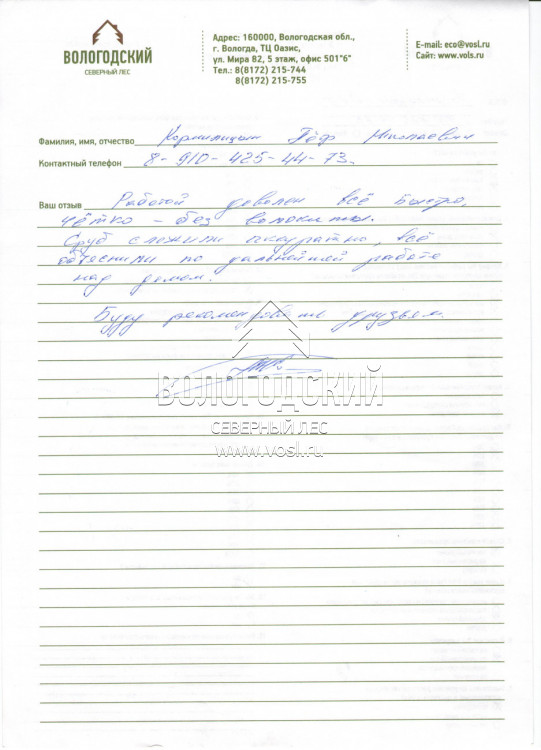 ВОЛОГОДСКИЙ
СЕВЕРНЫЙ ЛЕС
Адрес: 160000, Вологодская обл.,
г. Вологда, ТЦ Оазис,
ул. Мира 82, 5 этаж, офис 501"б"
Тел.: 8(8172) 215-744
8(8172) 215-755
E-mail: eco@vosl.ru
Сайт: www.vols.ru
Фамилия, имя, отчество Корнилицын Пётр Николаевич
Контактный телефон 8-910-425-44-73.
Ваш отзыв Работой доволен всё быстро,
чётко - без волокиты.
Сруб сложили аккуратно, всё
объяснили по дальнейшей работе
над домом.
Буду рекомендовать друзьям.
ВОЛОГОДСКИЙ
СЕВЕРНЫЙ ЛЕС
www.vosl.ru